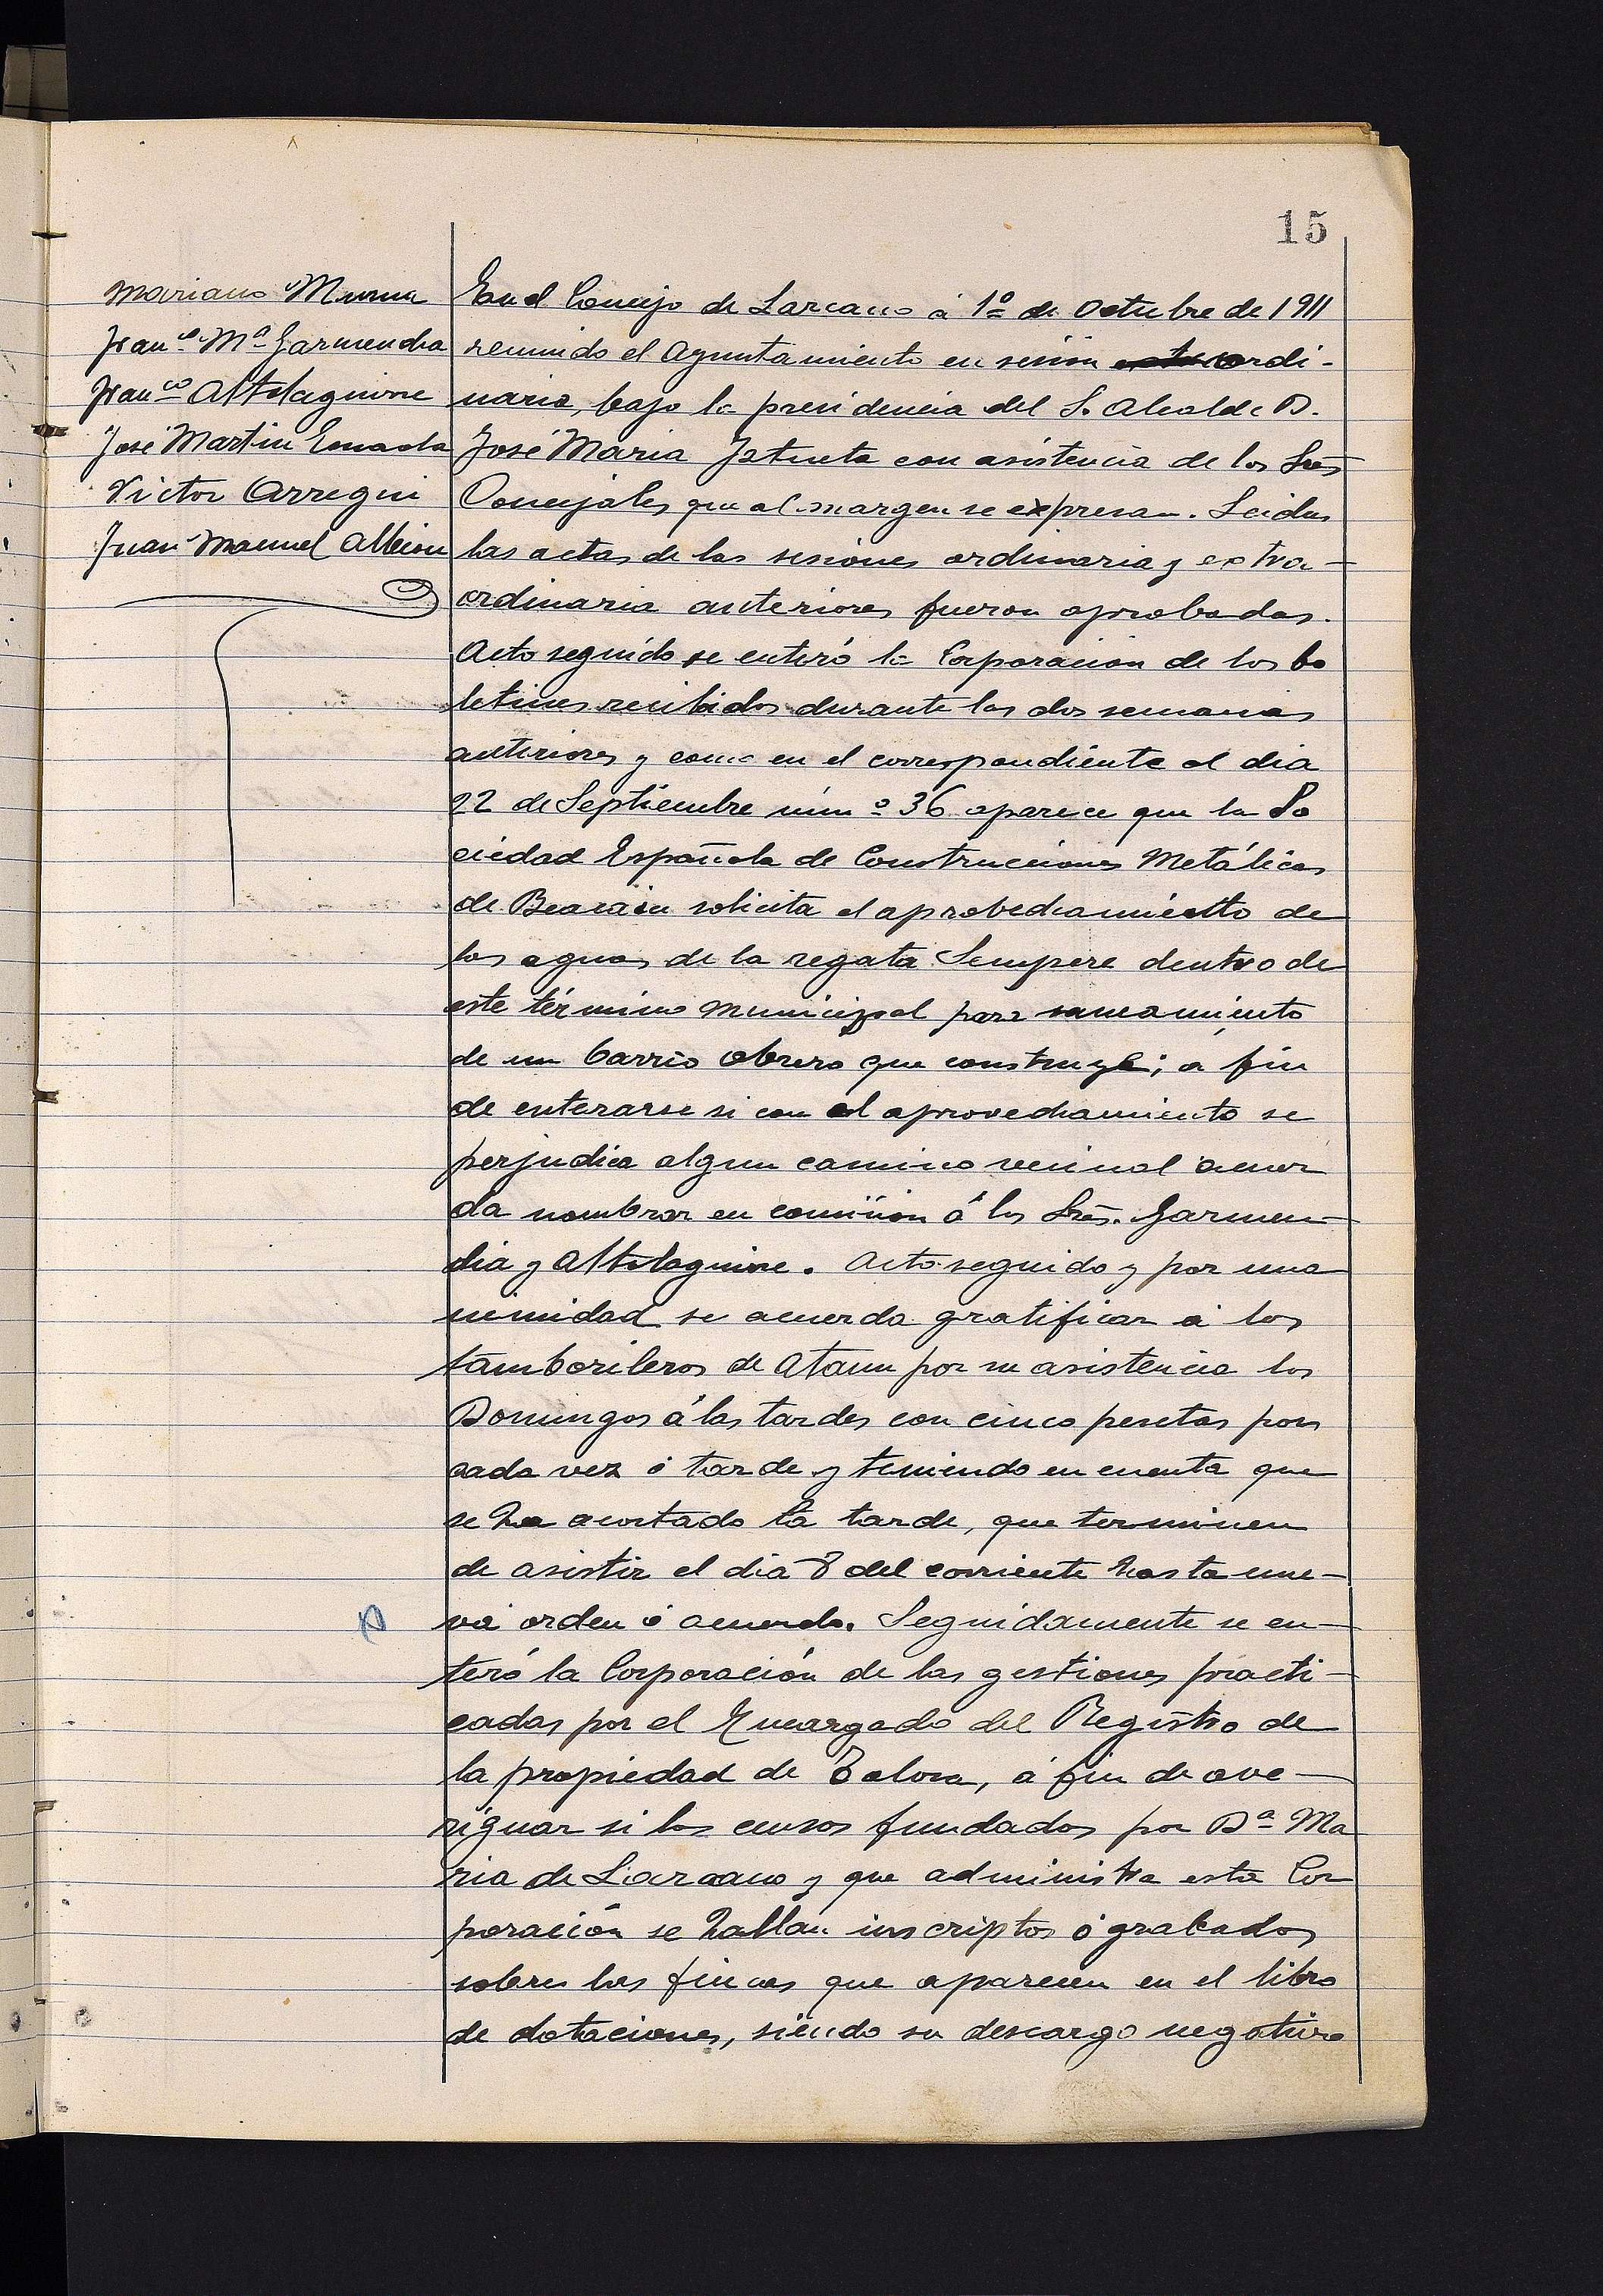 15
Mariano Murua
Fran.co Mª Garmendia
Fran.co Altolaguirre
José Martin
Victor Arregui
Juan Manuel Albisu
En el Concejo de Lazcano á 1º de Octubre de 1911
reunido el Ayuntamiento en sesión ordi-
naria, bajo la presidencia del S. Alcalde D.
José Maria Iztueta con asistencia de los Sres
Concejales que al margen se expresan. Leidas
las actas de las sesiones ordinaria y extra-
ordinaria anteriores fueron aprobadas.
Acto seguido se enteró la Corporación de los bo
letines recibidos durante las dos semanas
anteriores y como en el correspondiente al dia
22 de Septiembre núm.º 36 aparece que la So
ciedad Española de Construcciones Metálicas
de Beasain solicita el aprobechamiento de
las aguas de la regata Sempere dentro de
este término municipal para saneamiento
de un barrio obrero que construye; a fin
de enterarse si con el aprovechamiento se
perjudica algun camino vecinal acuer
da nombrar en comisión á los Sres. Garmen-
dia y Altolaguirre. Acto seguido y por una
nimidad se acuerda gratificar á los
tamborileros de Ataun por su asistencia los
Domingos á las tardes con cinco pesetas por
cada vez ó tarde y teniendo en cuenta que
se ha acortado la tarde, que terminen
de asistir el dia 8 del corriente hasta nue-
va orden ó acuerdo. Seguidamente se en-
teró la Corporación de las gestiones practi-
cadas por el Encargado del Registro de
la propiedad de Tolosa, á fin de ave-
riguar si los censos fundados por Dª Ma
ria de Lazcano y que administra esta Cor
poración se hallan inscriptos ó grabados
sobre las fincas que aparecen en el libro
de dotaciones, siendo su descargo negativo